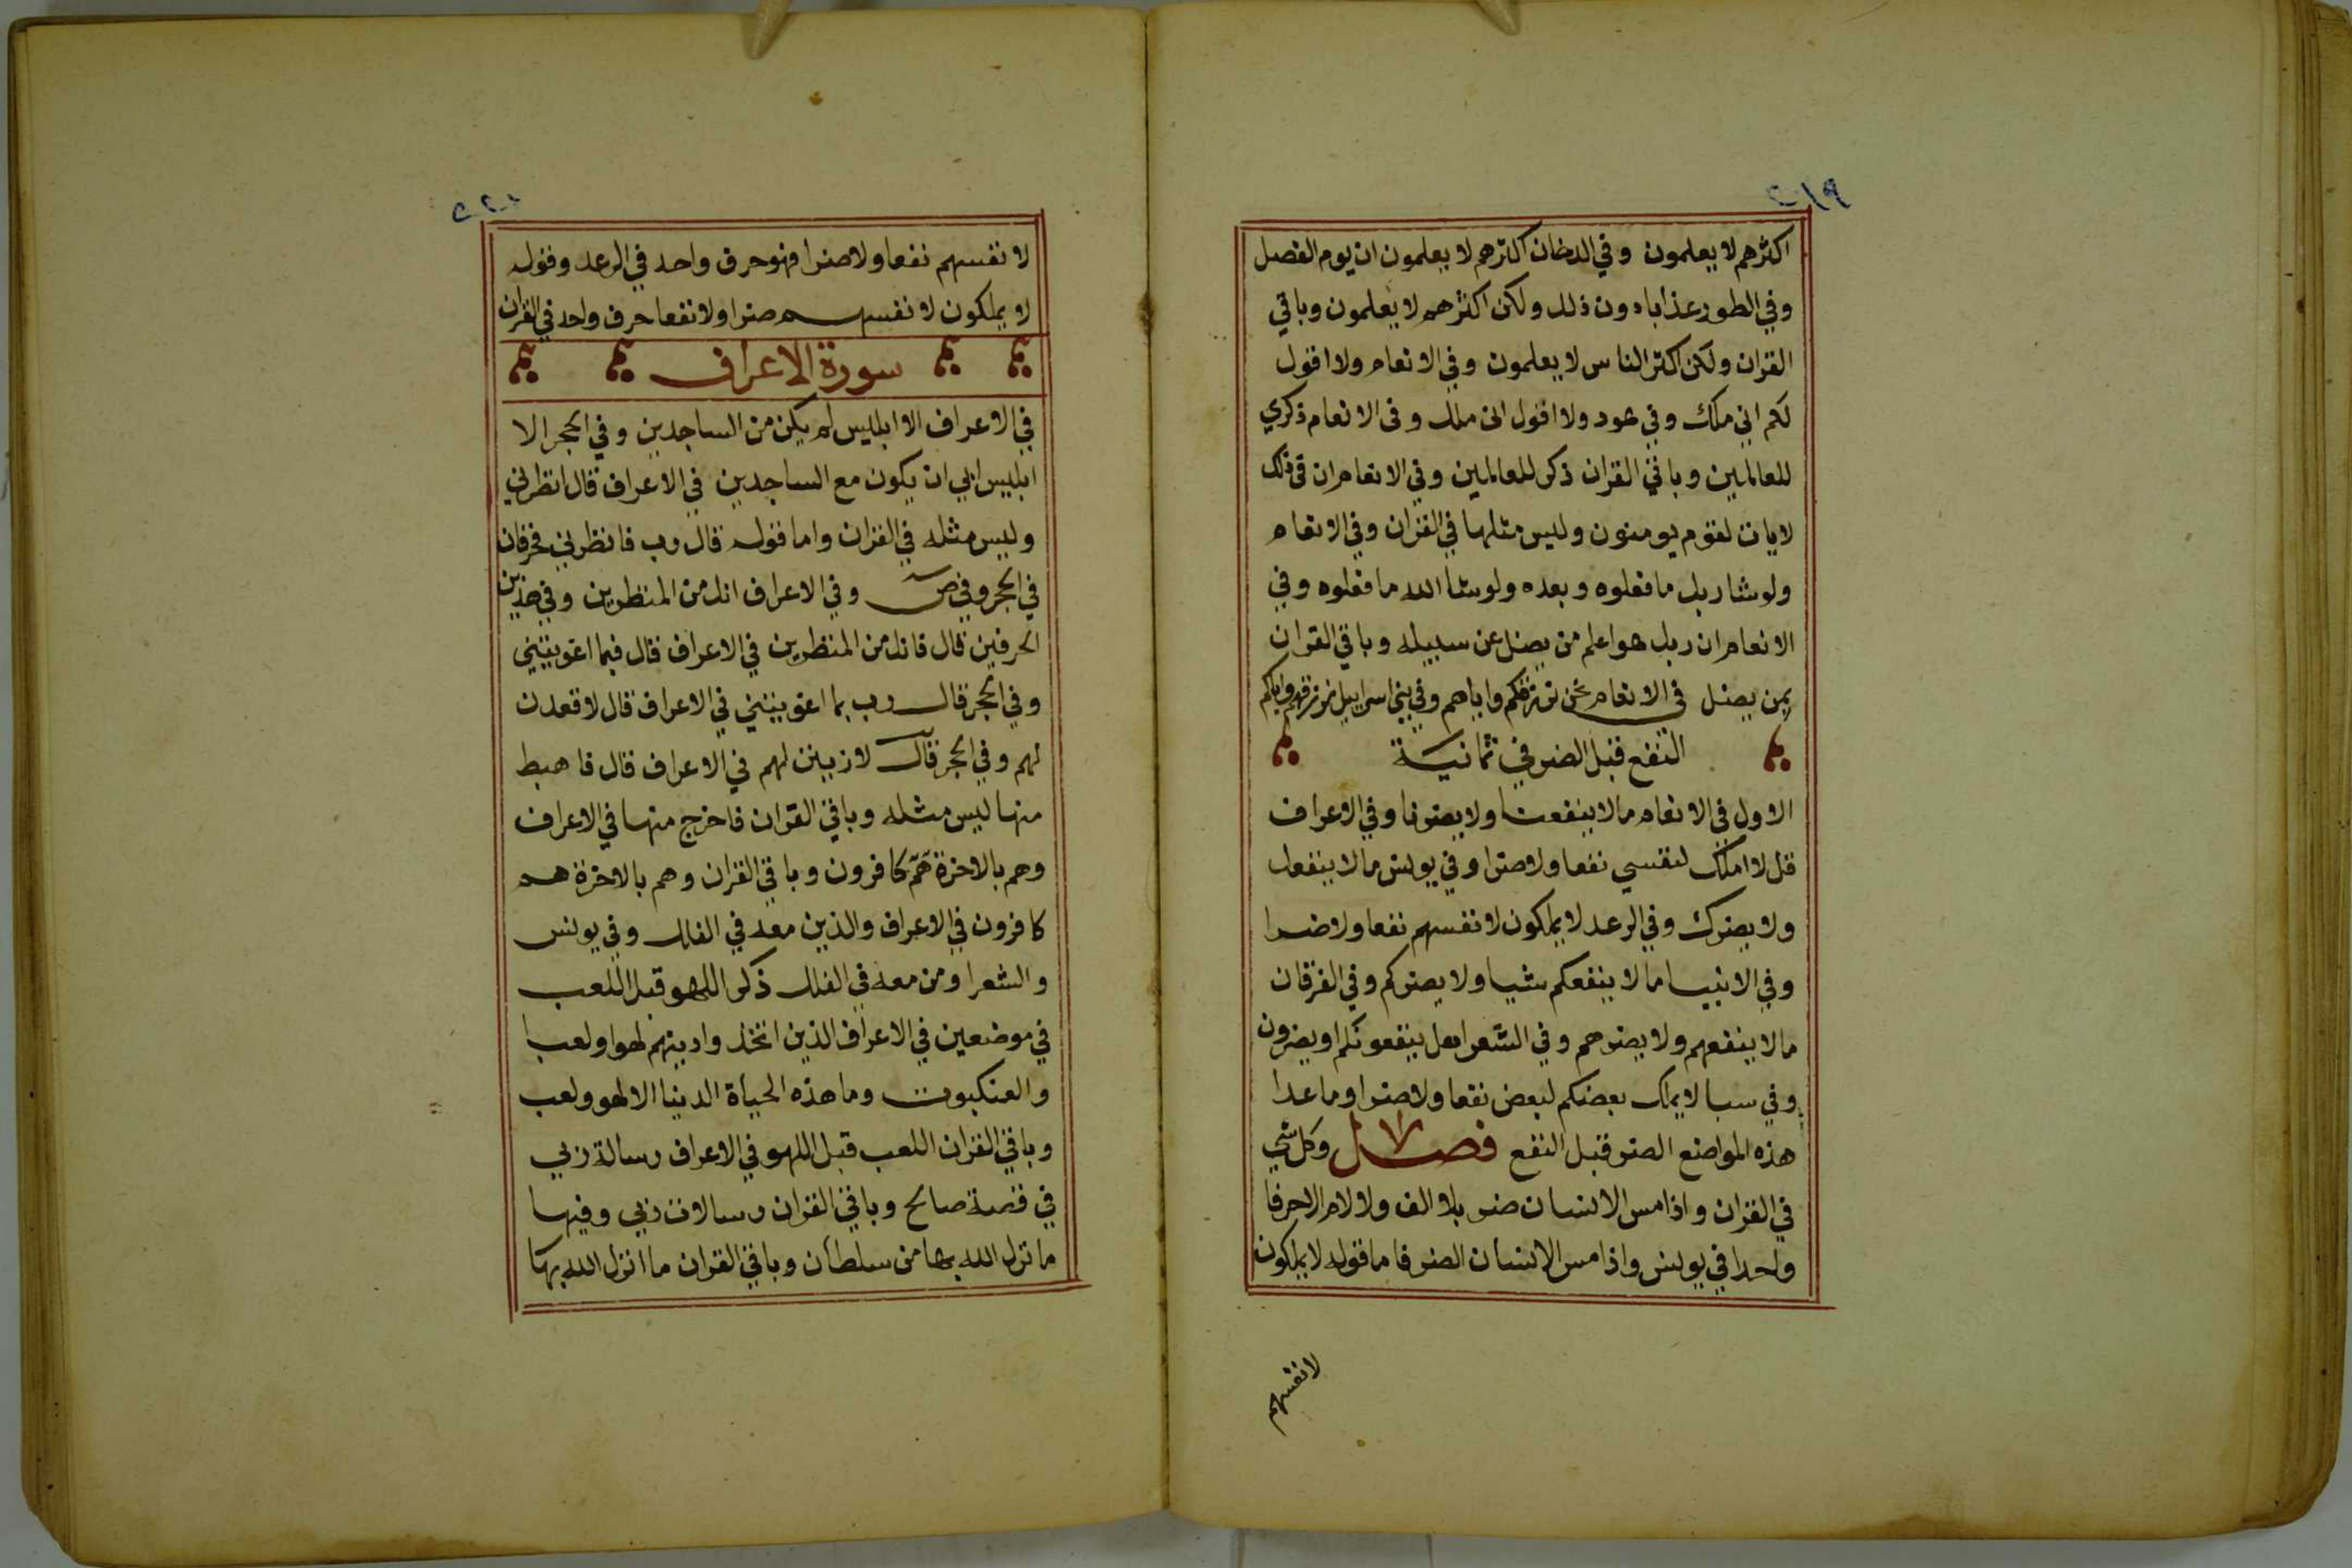 ٢١٩
اكثرهم لا يعلمون وفي الدخان اكثرهم لا يعلمون ان يوم الفصل
وفي الطور عذابا دون ذلك ولكن اكثرهم لا يعلمون وباقي
القران ولكن اكثر الناس لا يعلمون وفي الانعام ولا اقول
لكم اني ملك وفي هود ولا اقول اني ملك وفي الانعام ذكري
للعالمين وباقي القران ذكر للعالمين وفي الانعام ان في ذلك
لايات لقوم يومنون وليس مثلها في القران وفي الانعام
ولو شا ربك ما فعلوه وبعده ولو شا الله ما فعلوه وفي
الانعام ان ربك هو اعلم من يضل عن سبيله وباقي القران
بمن يضل في الانعام نحن نرزقكم واياهم وفي بني اسراييل نرزقهم واياكم
النفع قبل الضر في ثمانية
الاول في الانعام ما لا ينفعنا ولا يضرنا وفي الاعراف
قل لا املك لنفسي نفعا ولا ضرا وفي يونس ما لا ينفعك
ولا يضرك وفي الرعد لا يملكون لانفسهم نفعا ولا ضرا
وفي الانبيا ما لا ينفعكم شيا ولا يضركم وفي الفرقان
ما لا ينفعهم ولا يضرهم وفي الشعرا هل ينفعونكم او يضرون
وفي سبا لا يملك بعضكم لبعض نفعا ولا ضرا وما عدا
هذه المواضع الضر قبل النفع فصل وكل شي
في القران واذا مس الانسان ضر بلا الف ولا لام الا حرفا
واحدا في يونس واذا مس الانسان الضر فاما قوله لا يملكون
لانفسهم
٢٢٠
لانفسهم نفعا ولا ضرا فهو حرف واحد في الرعد وقوله
لا يملكون لانفسهم ضرا ولا نفعا حرف واحد في القران
سورة الاعراف
في الاعراف الا ابليس لم يكن من الساجدين وفي الحجر الا
ابليس ابي ان يكون مع الساجدين في الاعراف قال انظرني
وليس مثله في القران واما قوله قال رب فانظرني فحرفان
في الحجر وفي ص وفي الاعراف انك من المنظرين وفي هذين
الحرفين قال فانك من المنظرين في الاعراف قال فبما اغويتني
وفي الحجر قال رب بما اغويتني في الاعراف قال لاقعدن
لهم وفي الحجر قال لازينن لهم في الاعراف قال فاهبط
منها ليس مثله وباقي القران فاخرج منها في الاعراف
وهم بالاخرة هم كافرون وباقي القران وهم بالاخرة هم
كافرون في الاعراف والذين معه في الفلك وفي يونس
والشعرا ومن معه في الفلك ذكر اللهو قبل اللعب
في موضعين في الاعراف الذين اتخذوا دينهم لهوا ولعبا
والعنكبوت وما هذه الحياة الدنيا الا لهو ولعب
وباقي القران اللعب قبل اللهو في الاعراف رسالة ربي
في قصة صالح وباقي القران رسالات ربي وفيها
ما نزل الله بها من سلطان وباقي القران ما انزل الله بها